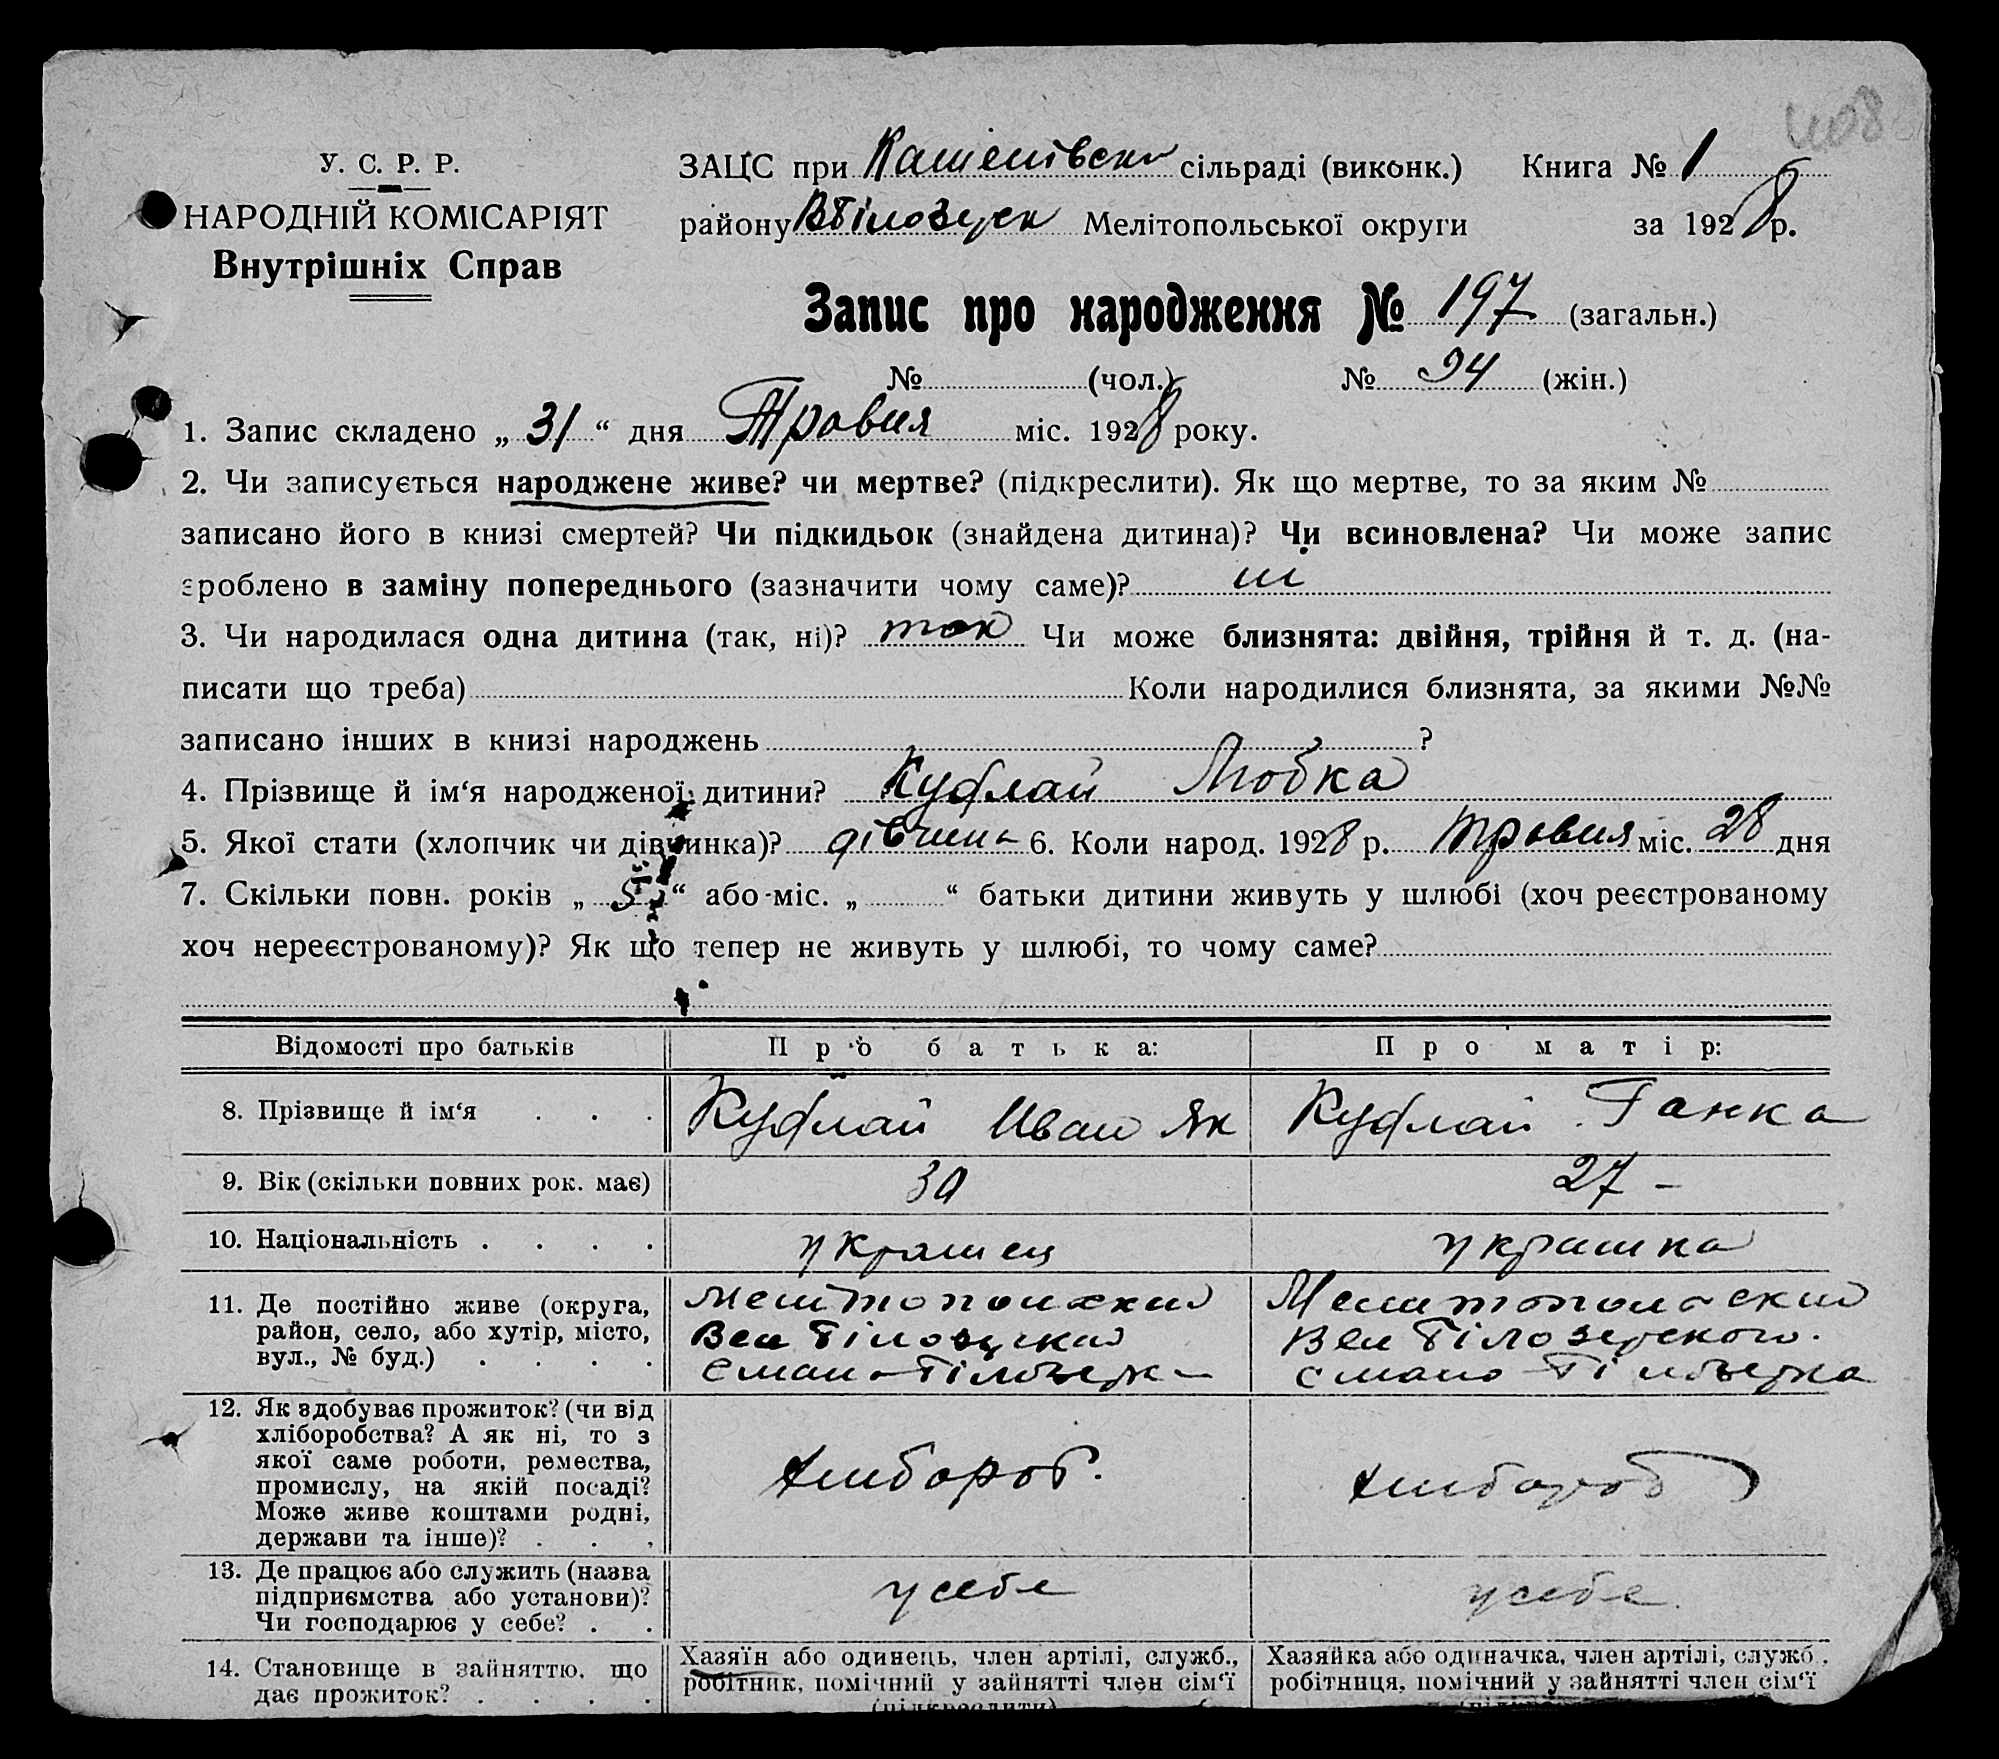 1108
У. С. Р. Р.
НАРОДНІЙ КОМІСАРІЯТ
Внутрішніх Справ
ЗАЦС при сільраді (виконк.) Книга № 1
району ВБілозерск Мелітопольської округи за 1928 р.
Запис про народження № 197 (загальн.)
№ (чол.) № 94 (жін.)
1. Запис складено „ 31 “ дня Травня міс. 1928 року.
2. Чи записується народжене живе? чи мертве? (підкреслити). Як що мертве, то за яким №
записано його в книзі смертей? Чи підкидьок (знайдена дитина)? Чи всиновлена? Чи може запис
зроблено в заміну попереднього (зазначити чому саме)? ні
3. Чи народилася одна дитина (так, ні)? так Чи може близнята: двійня, трійня й т. д. (на-
писати що треба) Коли народилися близнята, за якими №№
записано інших в книзі народжень ?
4. Прізвище й ім‘я народженої дитини? Кублай Любка
5. Якої стати (хлопчик чи дівчинка)? дівчина 6. Коли народ. 1928 р. травня міс. 28 дня
7. Скільки повн. років „ 5 “ або міс. „ “ батьки дитини живуть у шлюбі (хоч реєстрованому
хоч нереєстрованому)? Як що тепер не живуть у шлюбі, то чому саме?
Відомості про батьків Про батька: Про матір:
8. Прізвище й ім‘я . . . Кублай Иван Як Кублай Ганка
9. Вік (скільки повних рок. має) 30 27 –
10. Національність . . . . українец українка
11. Де постійно живе (округа, Мелітопольский Мелитопольский
район, село, або хутір, місто, Вел Білозерский Вел Білозерского.
вул., № буд.) . . . .
12. Як здобуває прожиток? (чи від
хліборобства? А як ні, то з
якої саме роботи, ремества,
промислу, на якій посаді? хлибороб. хлибороб
Може живе коштами родні,
держави та інше)? . . .
13. Де працює або служить (назва
підприємства або установи)? у себе у себе.
Чи господарює у себе? . .
14. Становище в зайняттю, що Хазяїн або одинець, член артілі, служб., Хазяйка або одиначка, член артілі, служб.,
дає прожиток? . . . . робітник, помічний у зайнятті член сім‘ї робітниця, помічний у зайнятті член сім‘ї
(підкреслити)